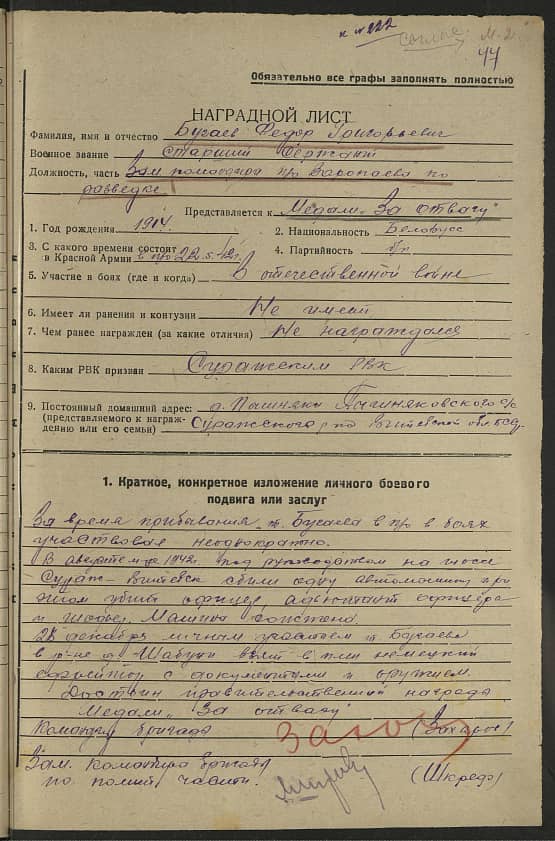 к № 222
М-2
44
Обязательно все графы заполнять полностью
НАГРАДНОЙ ЛИСТ
Фамилия, имя и отчество Бугаев Федор Григорьевич
Военное звание Старший Сержант
Должность, часть Зам командира п/о Варопаева по
разведке
Представляется к Медали „За отвагу"
1. Год рождения 1914 2. Национальность Белорусс
3. С какого времени состоит
в Красной Армии в п/о 22.5.42г. 4. Партийность б/п
5. Участие в боях (где и когда) В отечественной войне
6. Имеет ли ранения и контузии Не имеет
7. Чем ранее награжден (за какие отличия) Не награждался
8. Каким РВК призван Суражским РВК
9. Постоянный домашний адрес: д. Пашняки с/с
(представляемого к награж-
дению или его семьи) Суражского р-на Витебской обл. БССР
1. Краткое, конкретное изложение личного боевого
подвига или заслуг
За время пребывания т. Бугаева в п/о в боях
участвовал неоднократно.
В августе м-це 1942г. под руководством на шоссе
Сураж-Витебск сбили одну автомашину при
этом убит офицер, адъютант офицера
и шофер. Машина сожжена.
28 декабря личным участием т. Бугаева
в р-не д. взят в плен немецкий
ефрейтор с документами и оружием.
Достоин правительственной награды
Медали „За отвагу"
Командир бригады (Захаров)
Зам. командира бригады
по полит части. (Шкредо)